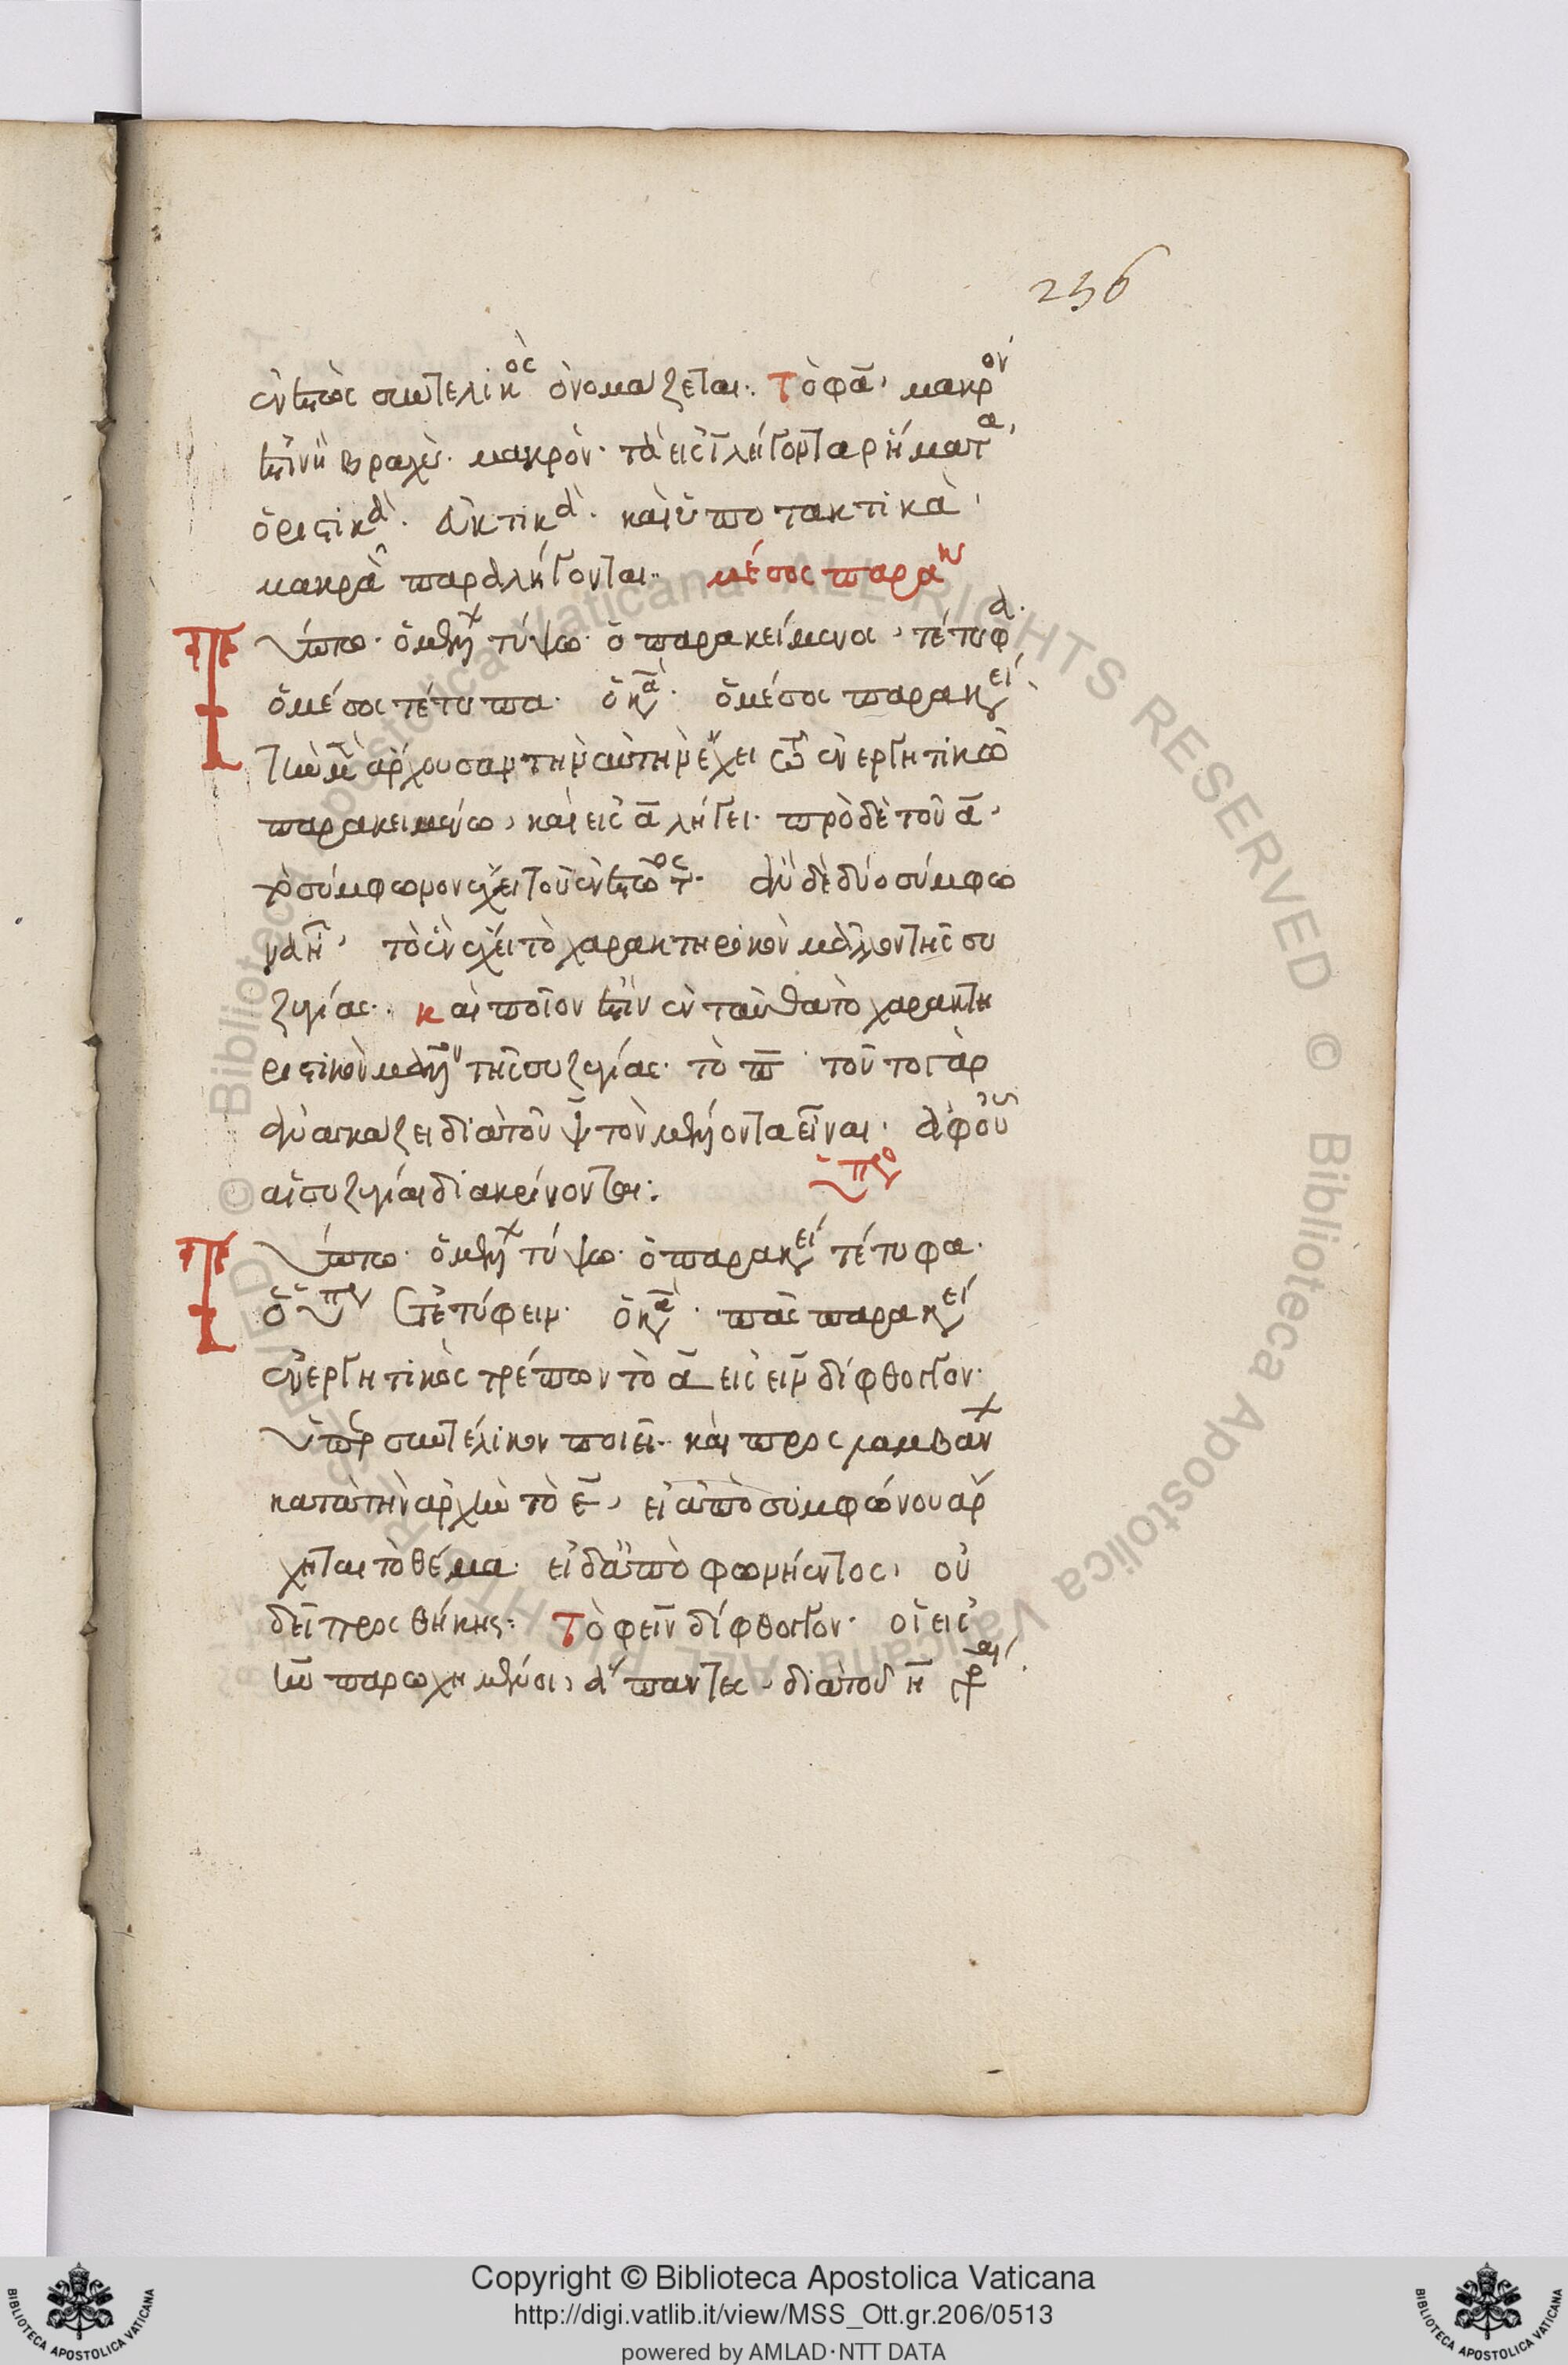 256
ἐνεστὼς συντελικὸς ὀνομάζεται: Τὸ φᾱ, μακρὸν
ἐστὶν ἢ βραχύ· μακρόν· τὰ εἰς ῑ λήγοντα ῥήματα,
ὁριστικὰ· εὐκτικὰ· καὶ ὑποτακτικὰ,
μακρᾶ παραλήγονται: μέσος παρακ
Τύπτω· ὁ μέλλων τύψω· ὁ παρακείμενος, τέτυφα·
ὁ μέσος τέτυπα· ὁ κα· ὁ μέσος παρακεί
τὴν μὲν ἄρχουσαν τὴν αὐτὴν ἔχει τῶ ἐνεργητικῶ
παρακειμένω, καὶ εἰς ᾱ λήγει· πρὸ δὲ τοῦ ᾱ·
τὸ σύμφωνον ἔχει τοῦ ἐνεστῶτος· ἂν δὲ δύο σύμφω
να ἦ, τὸ ἓν ἔχει τὸ χαρακτηρίζον μᾶλλον τῆς συ
ζυγίας· καὶ ποῖον ἐστὶν ἐνταῦθα τὸ χαρακτη
ριστικὸν μᾶλλον τῆς συζυγίας· τὸ π̄ τοῦτο γὰρ
ἀναγκάζει διὰ τοῦ ψ τὸν μέλλοντα εἶναι· ἀφ' οὗ
αἱ συζυγίαι διακρίνονται:
ὑπερ
Τύπτω· ὁ μέλλων τύψω· ὁ παρακεί τέτυφα·
ὁ ὑπερ ἐτετύφειν· ὁ κα· πᾶς παρακεί
ἐνεργητικὸς τρέπων τὸ ᾱ εἰς ειν δίφθογγον·
ὑπερσυντέλικον ποιεῖ· καὶ προσλαμβάν
κατὰ τὴν ἀρχὴν τὸ ε̄, εἰ ἀπὸ συμφώνου ἄρ
χηται τὸ θέμα· εἰ δ' ἀπὸ φωνήεντος, οὐ
δεῖ προσθήκης: Τὸ φειν δίφθογγον· οἱ εἰς
ην παρωχημένοι, ἅπαντες, διὰ τοῦ η̄
Copyright © Biblioteca Apostolica Vaticana
http://digi.vatlib.it/view/MSS_Ott.gr.206/0513
powered by AMLAD·NTT DATA
BIBLIOTECA APOSTOLICA VATICANA
BIBLIOTECA APOSTOLICA VATICANA
© Biblioteca Apostolica Vaticana ALL RIGHTS RESERVED
© Biblioteca Apostolica Vaticana ALL RIGHTS RESERVED